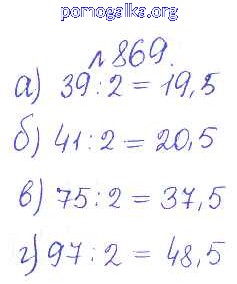 pomogalka.org
№869.
а) 39:2 = 19,5
б) 41:2 = 20,5
в) 75:2 = 37,5
г) 97:2 = 48,5